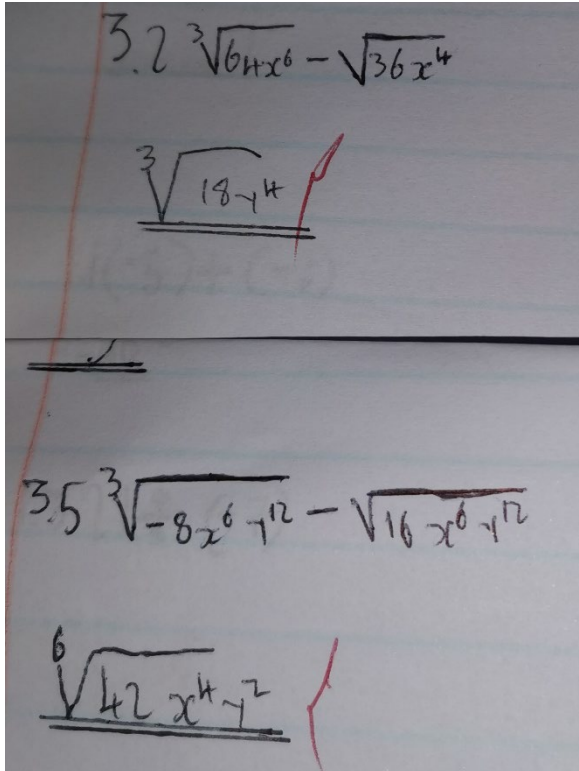 3.2 ∛64x⁶ − √36x⁴
∛18y⁴
3.5 ∛−8x⁶y¹² − √16x⁶y¹²
⁶√42x⁴y²